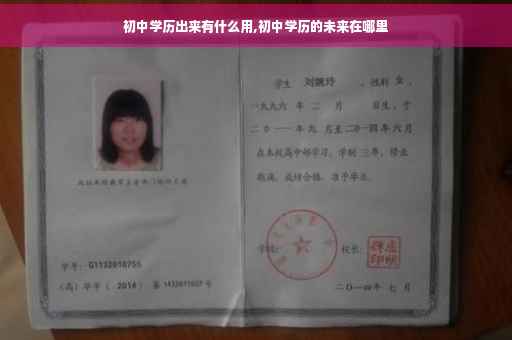 初中学历出来有什么用,初中学历的未来在哪里
学生 刘婉玲 ,性别 女 ,
一九九六 年 二 月 日生,于
二0一一 年 九 月至 二0一四 年 六 月
在本校高中部学习,学制 三 年,修业
期满,成绩合格,准予毕业。
学校: 校长:
学号: G1132010755
(高)毕字( 2014 )第 1432011027 号
二〇一四年 七 月